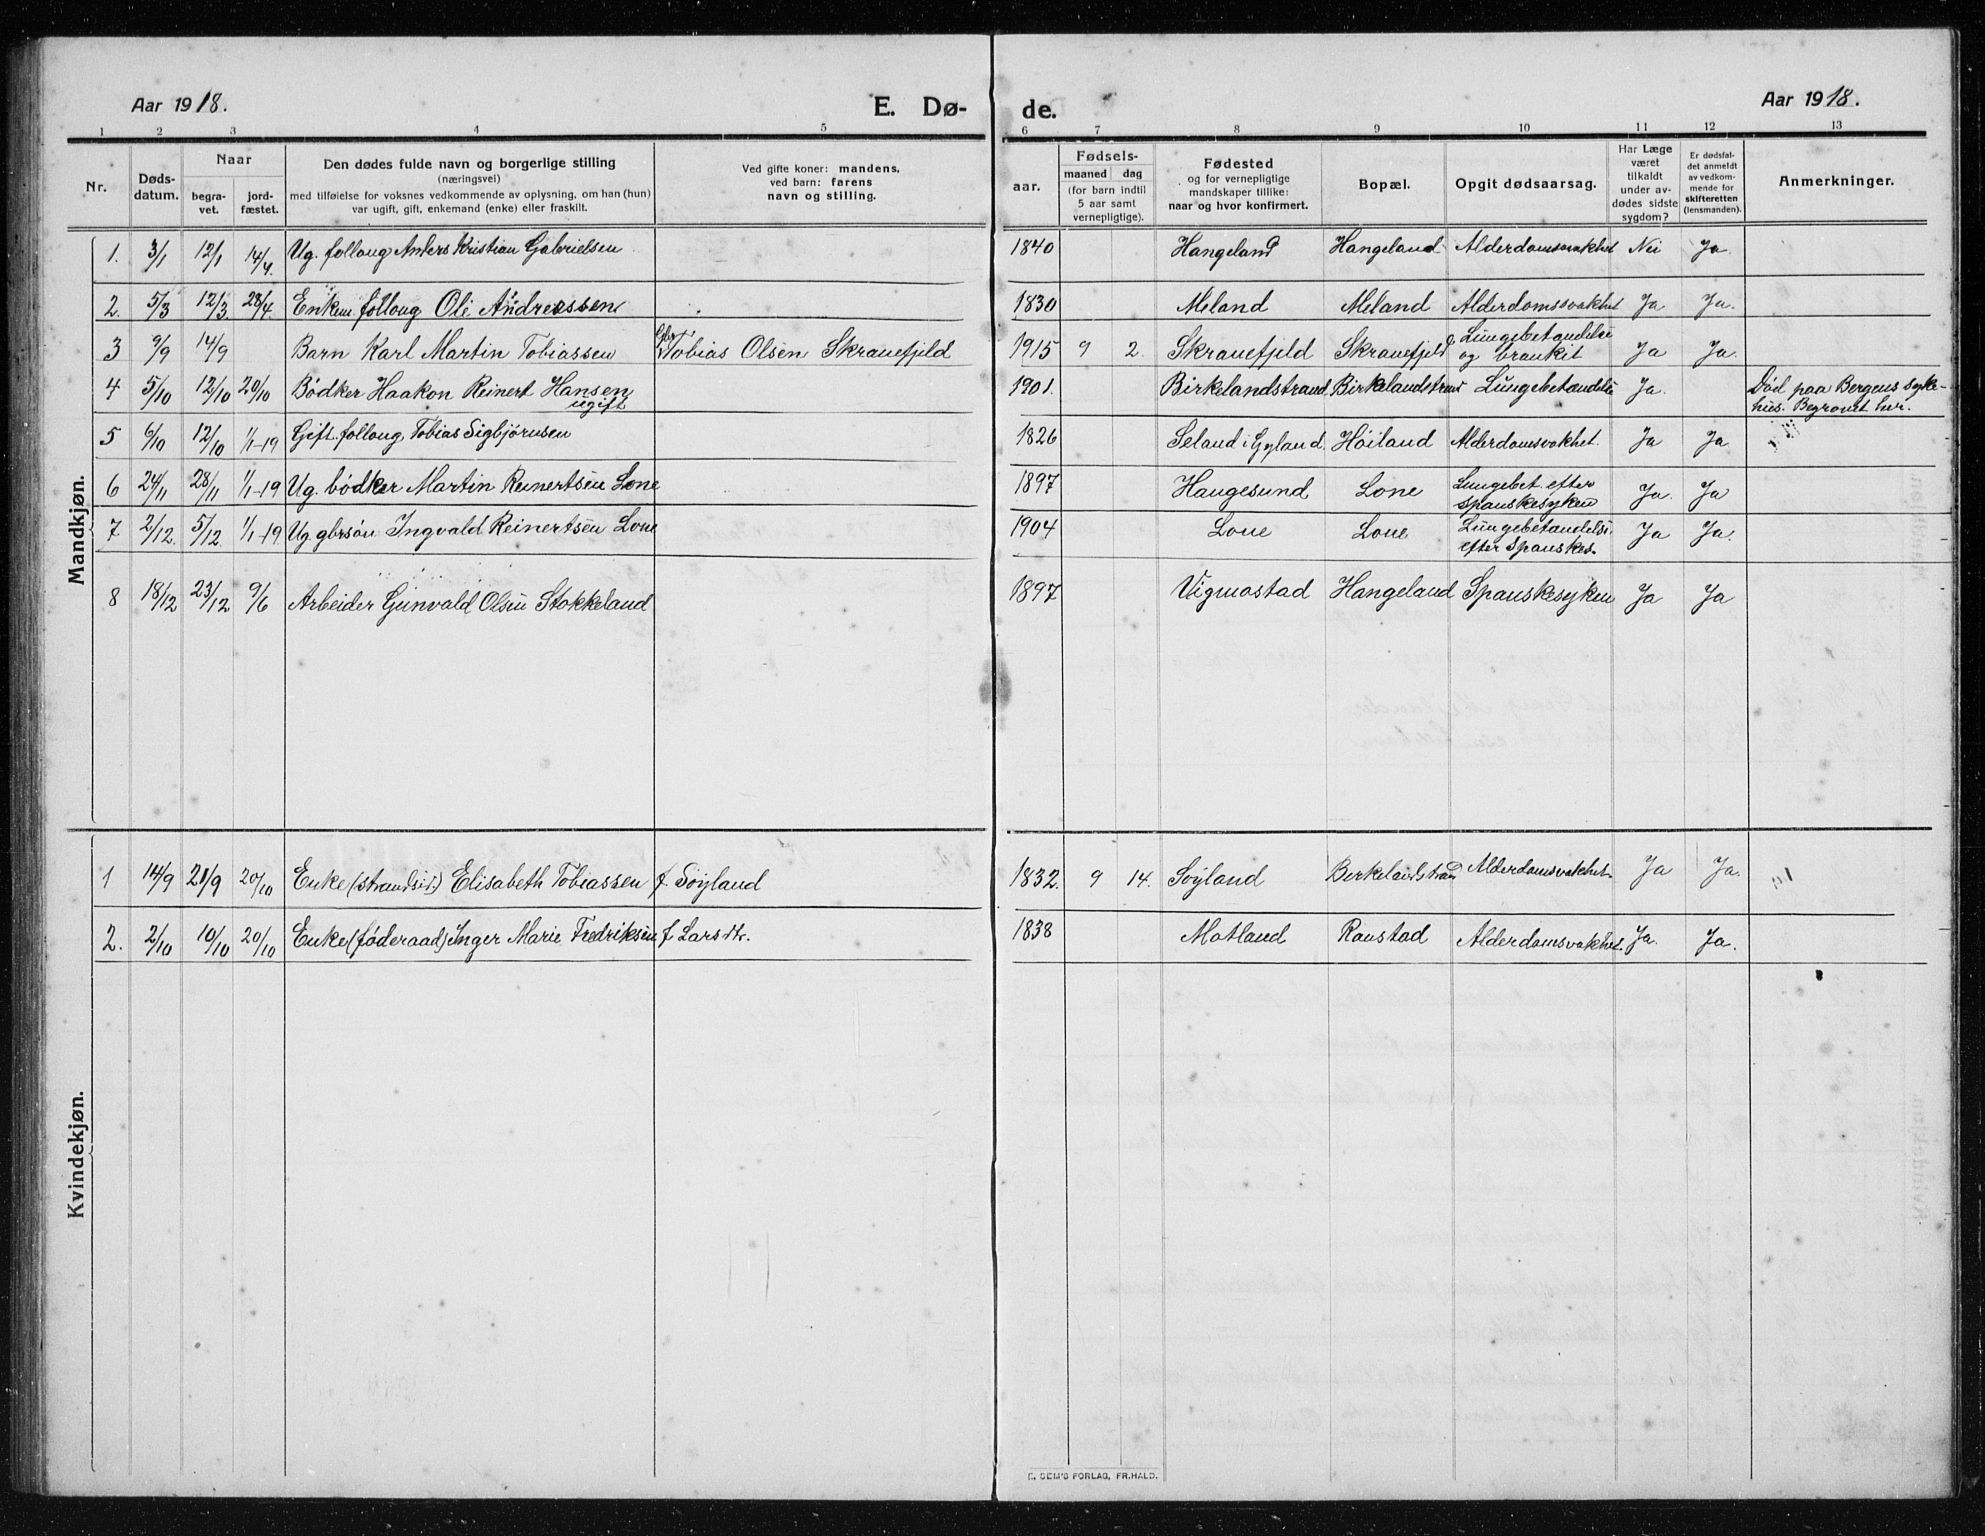 Aar 1918. E. Dø- de. Aar 1918.
1 2 3 4 5 6 7 8 9 10 11 12 13
Nr. Døds-datum. Naar begra-vet. jord-fæstet. Den dødes fulde navn og borgerlige stilling (næringsvei) med tilføielse for voksnes vedkommende av oplysning, om han (hun) var ugift, gift, enkemand (enke) eller fraskilt. Ved gifte koner: mandens, ved barn: farens navn og stilling. aar. Fødsels- maaned dag (for barn indtil 5 aar samt vernepligtige). Fødested og for vernepligtige mandskaper tillike: naar og hvor konfirmert. Bopæl. Opgit dødsaarsag. Har Læge været tilkaldt under av-dødes sidste sygdom? Er dødsfal-det anmeldt av vedkom-mende for skifteretten (lensmanden). Anmerkninger.
Mandkjøn.
1. 3/1 12/1 14/4. Ug. follaug Anders Kristian Gabrielsen 1840 Hangeland Hangeland Alderdomssvakhet Nei Ja
2. 5/3 12/3 28/4. Enkem. follaug Ole Andreassen 1830 Meland Meland Alderdomssvakhet Ja Ja.
3 9/9 14/9 Barn Karl Martin Tobiassen Tobias Olsen Skranefjeld 1915 9 2. Skranefjeld Skranefjeld Lungebetændelse
og bronkit Ja Ja.
4 5/10 12/10 20/10 Bødker Haakon Reinert Hansen
ugift 1901. Birkelandstrand Birkelandstrand Lungebetændelse Ja. Død paa Bergens syke-
hus. Begravet her.
5 6/10 12/10 1/1-19 Gift follaug Tobias Sigbjørnsen 1826 Seland i Gyland Høiland Alderdomsvakhet. Ja Ja
6 24/11 28/11 1/1-19 Ug. bødker Martin Reinertsen Lone 1897 Haugesund Lone Lungebet. efter
spanskesyken Ja. Ja
7 2/12. 5/12. 1/1-19. Ug. gbrsøn Ingvald Reinertsen Lone 1904 Lone Lone Lungebetændelse
efter Spanskes. Ja Ja.
8 18/12 23/12 9/6 Arbeider Gunvald Olsen Stokkeland 1897 Vigmostad Hangeland Spanskesyken Ja Ja
Kvindekjøn.
1 14/9 21/9 20/10 Enke (strandsid.) Elisabeth Tobiassen f. Søyland 1832. 9 14. Søyland Birkelandstrand Alderdomsvakhet. Ja Ja.
2. 2/10 10/10 20/10 Enke (føderaad) Inger Marie Fredriksen f Larsdtr. 1838 Matland Raustad Alderdomsvakhet. Ja. Ja.
E. SEM'S FORLAG, FR.HALD.